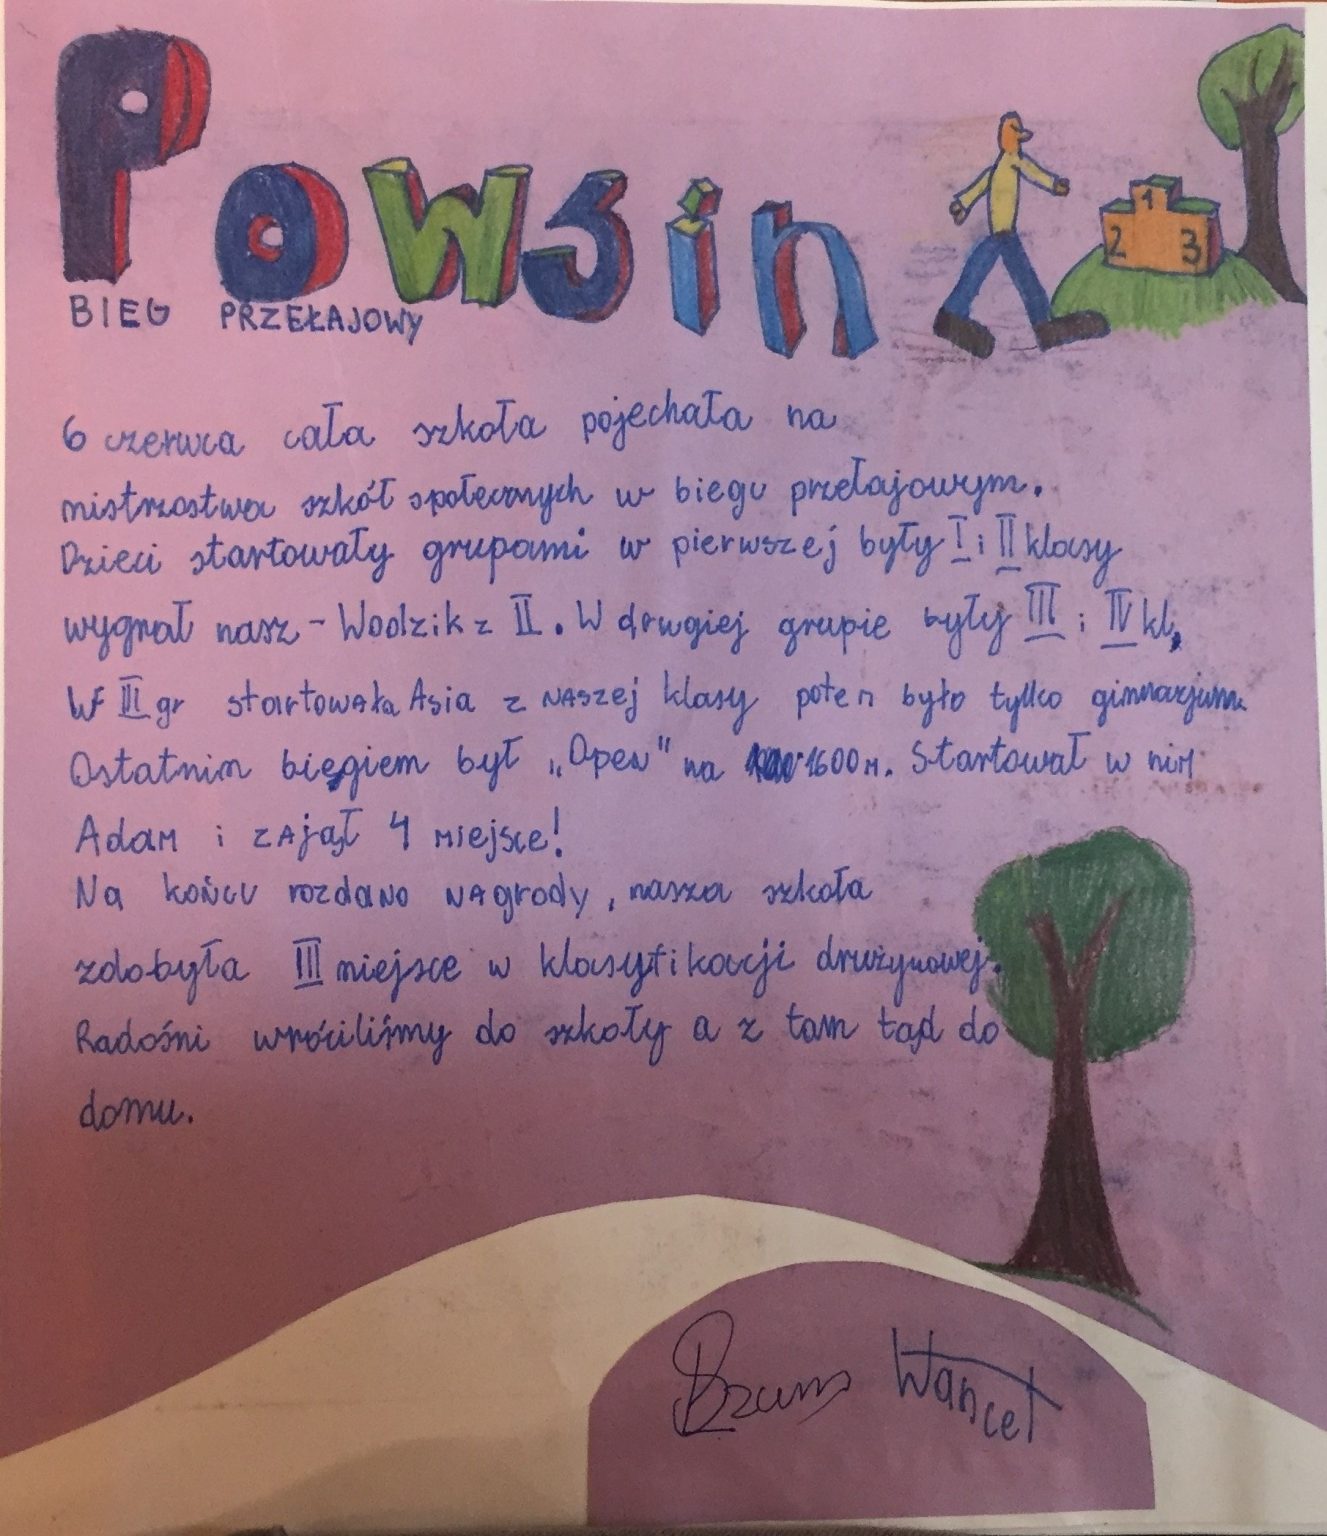 Powsin
BIEG PRZEŁAJOWY
1
2 3
6 czerwca cała szkoła pojechała na
mistrzostwa szkół społecznych w biegu przełajowym.
Dzieci startowały grupami w pierwszej były I i II klasy
wygrał nasz - Wodzik z II. W drugiej grupie były III i IV kl,
W III gr startowała Asia z naszej klasy potem było tylko gimnazjum
Ostatnim biegiem był „Open" na 1600 m. Startował w nim
Adam i zajął 4 miejsce!
Na końcu rozdano nagrody, nasza szkoła
zdobyła III miejsce w klasyfikacji drużynowej.
Radośni wróciliśmy do szkoły a z tam tąd do
domu.